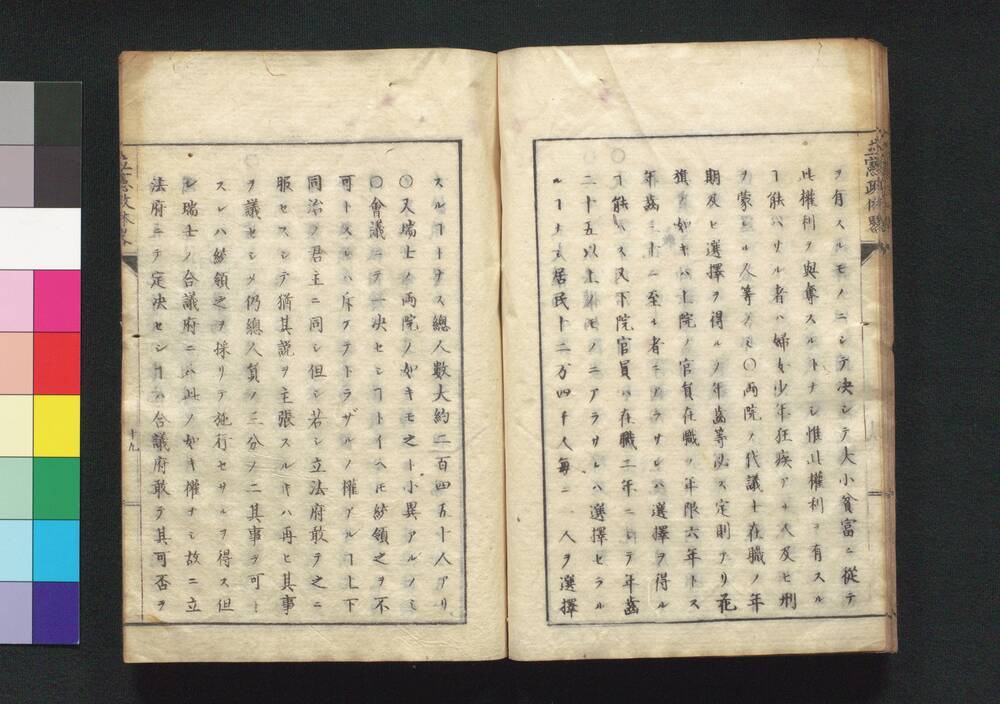 ヲ有スルモノニシテ決シテ大小貧富ニ從テ
此權利ヲ與奪スルヿナシ惟此權利ヲ有スル
ヿ能ハサル者ハ婦女少年狂疾アル人及ヒ刑
ヲ蒙レル人等ノミ○兩院ノ代議士在職ノ年
期及ヒ選擇ヲ得ルノ年齒等必ス定則アリ花
旗ノ如キハ上院ノ官員在職ノ年限六年トス
年齒三十ニ至ル者ニアラサレハ選擇ヲ得ル
ヿ能ハス又下院官員ハ在職二年ニシテ年齒
二十五以上ノモノニアラサレハ選擇セラル
ルヿナシ居民十二万四千人每ニ一人ヲ選擇
スルヿトナス總人數大約二百四五十人アリ
○又瑞士ノ両院ノ如キモ之ト小異アルノミ
○會議ニテ一决セシヿトイヘ𪜈統領之ヲ不
可トスレハ斥ケテトラザルノ權アルヿ上下
同治ノ君主ニ同シ但シ若シ立法府敢テ之ニ
服セスシテ猶其説ヲ主張スル𪜈ハ再ヒ其事
ヲ議セシメ仍總人員ノ三分ノ二其事ヲ可ト
スレハ統領之ヲ採リテ施行セサルヲ得ス但
シ瑞士ノ合議府ニハ此ノ如キ權ナシ故ニ立
法府ニテ定决セシヿハ合議府敢テ其可否ヲ
立憲政体畧
十九